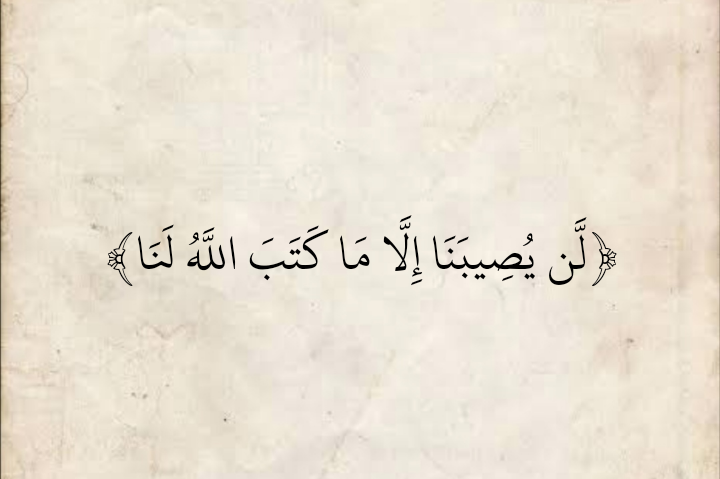 ﴿لَّن يُصِيبَنَا إِلَّا مَا كَتَبَ اللَّهُ لَنَا﴾